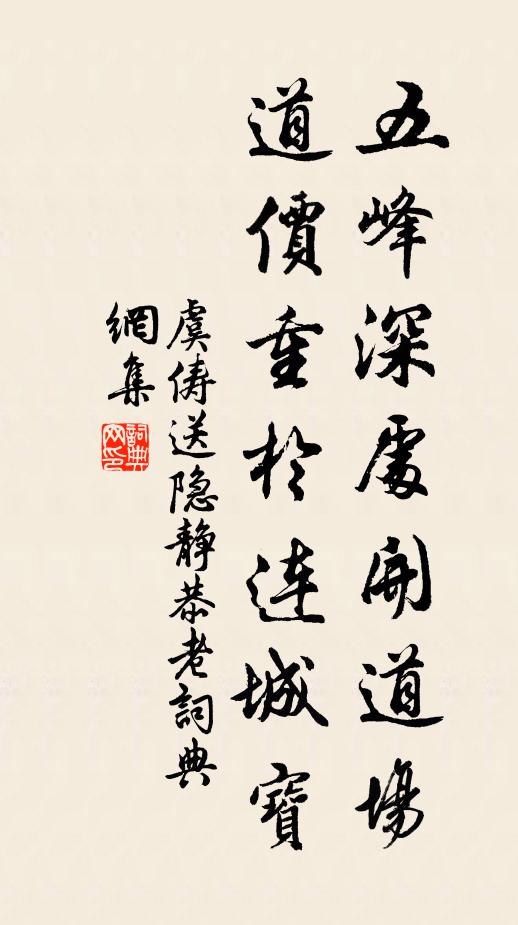 五峰深處開道場
道價重於連城寶
虞俦送隐静恭老詞典
網集
詞典
网印